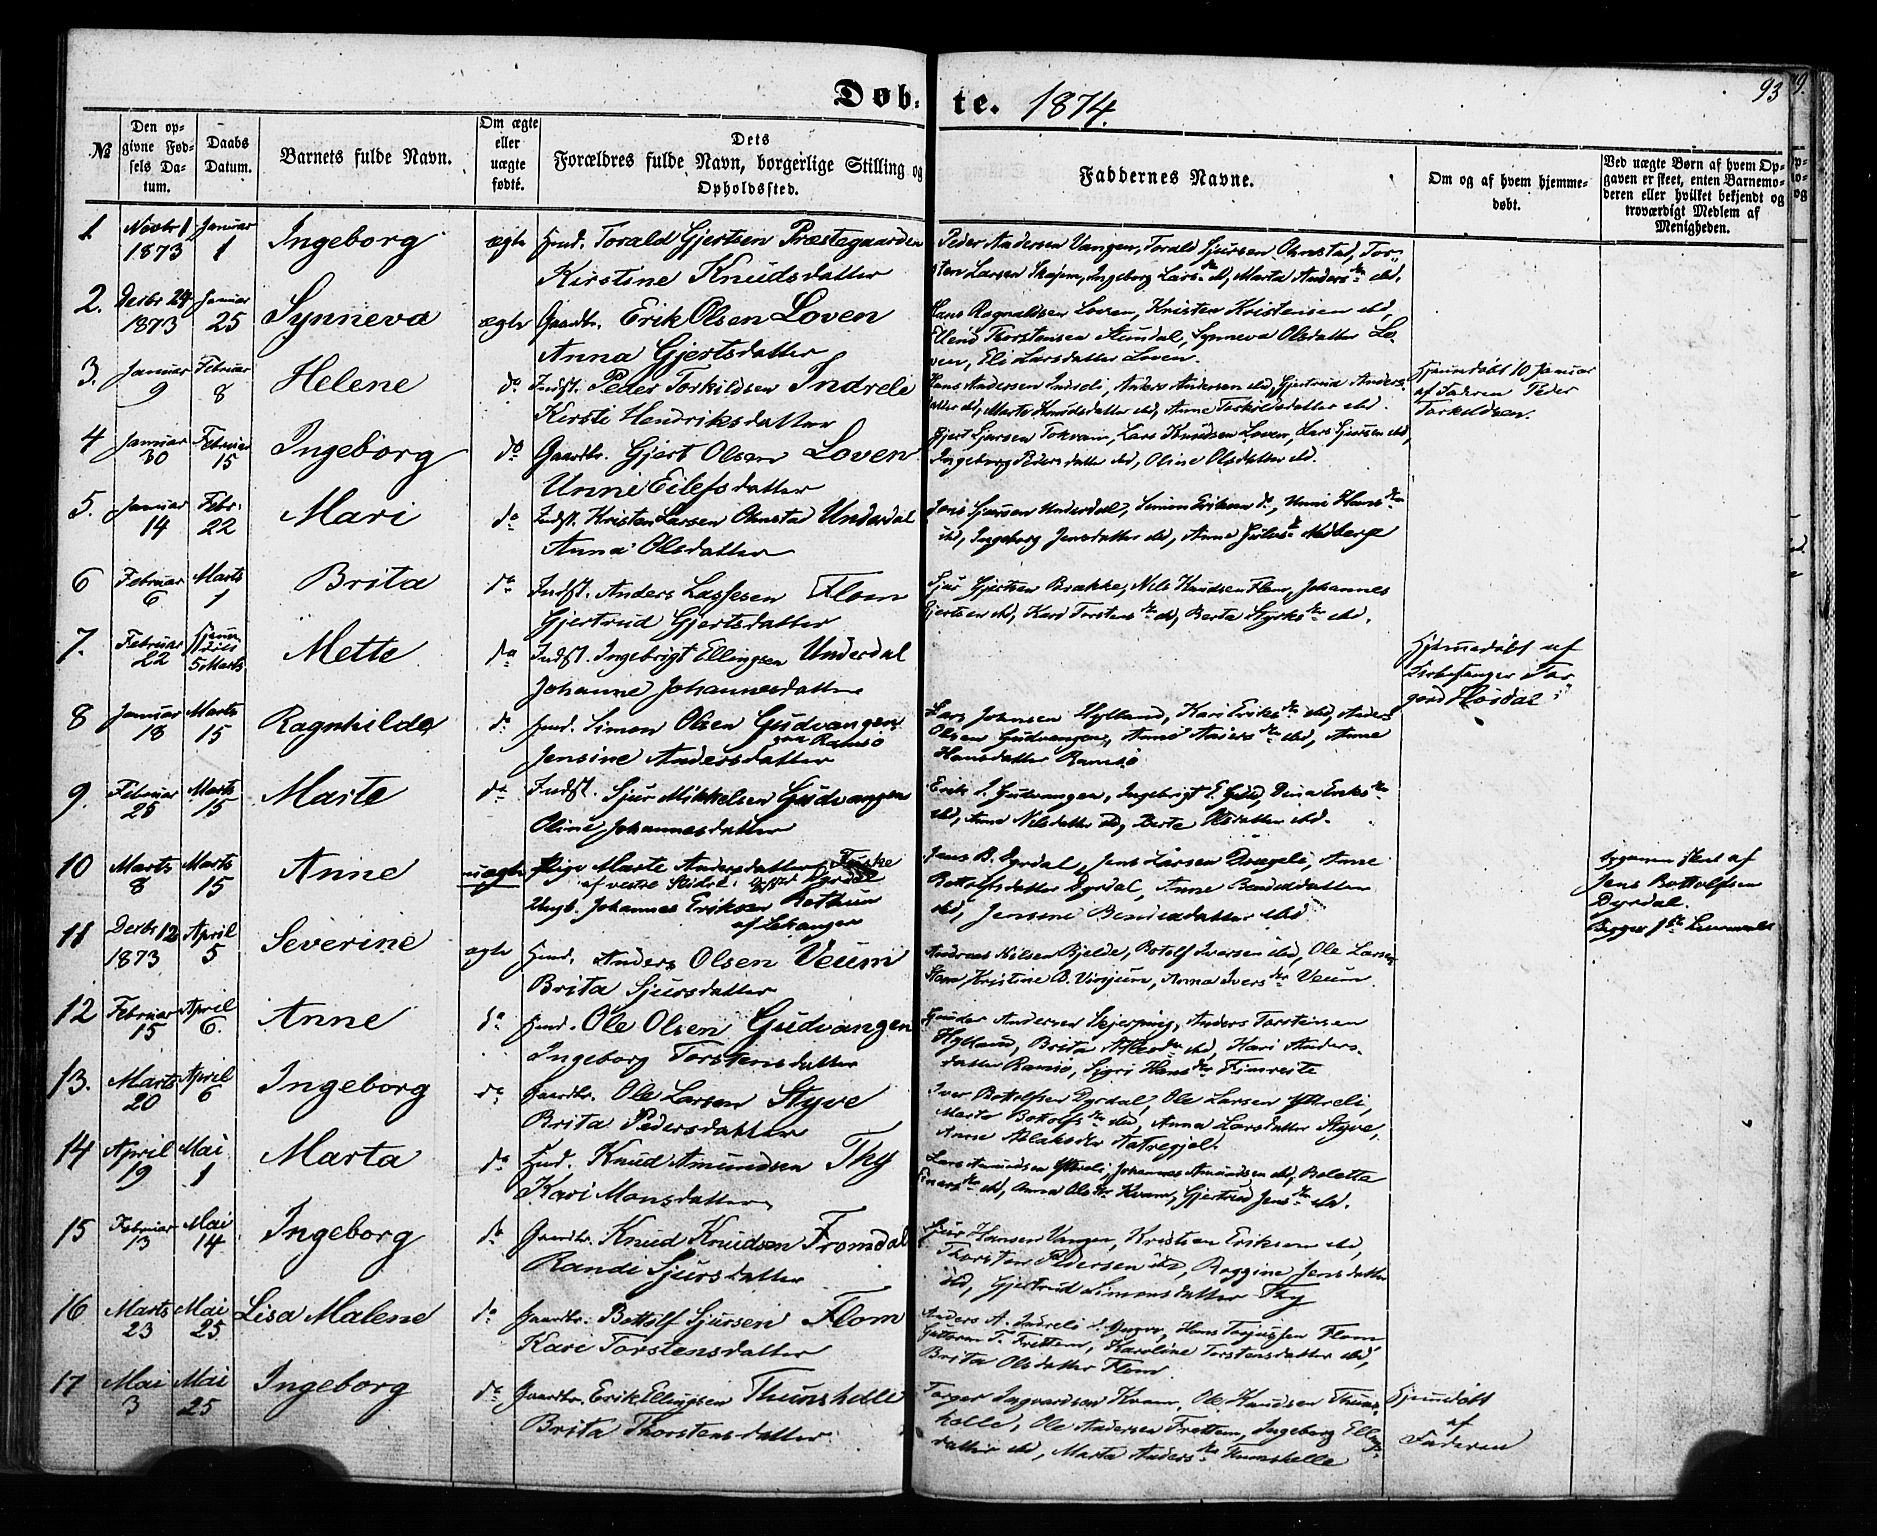 Døb-
te. 1874.
93
№
Den opgivne Fødsels Datum.
Daabs Datum.
Barnets fulde Navn.
Om ægte eller uægte født.
Dets Forældres fulde Navn, borgerlige Stilling og Opholdssted.
Faddernes Navne.
Om og af hvem hjemmedøbt.
Ved uægte Børn af hvem Opgaven er skeet, enten Barnemoderen eller hvilket bekjendt og troværdigt Medlem af Menigheden.
1 Novbr 1 1873 Januar 1 Ingeborg ægte Huud. Torald Gjertsen Præstegaarden
Kirstine Knudsdatter
Peder Andersen Vangen, Torald Sjursen Ohnstad, Tor-
sten Larsen Skajem, Ingeborg Larsdr ibd, Marta Andersdr ibd.
2. Decbr 24 1873 Januar 25 Synneva ægte Gaardbr. Erik Olsen Loven
Anna Gjertsdatter
Hans Ragnvaldsen Loven, Kristen Kristensen ibd,
Erlend Thorstensen Aundal, Synneva Olsdatter Lo-
ven, Eli Larsdatter Loven.
3. Januar 9 Februar 8 Helene do Indst. Peder Torkildsen Indreli
Kirsti Hendriksdatter
Hans Andersen Indreli, Anders Andersen ibd, Gjertrud Anders-
datter ibd, Marte Knudsdatter ibd, Anne Torkildsdatter ibd.
Hjemmedøbt 10 Januar
af Faderen Peder
Torkildsen.
4 Januar 30 Februar 15 Ingeborg do Gaardbr. Gjert Olsen Loven
Unni Eilefsdatter
Gjert Sjursen Tokvam, Lars Knudsen Loven, Lars Sjursen ibd,
Ingeborg Pedersdatter ibd, Oline Olsdatter ibd.
5. Januar 14 Febr. 22 Mari do Indst. Kristen Larsen Ohnstad Underdal
Anna Olsdatter
Jens Sjursen Underdal, Simon Eriksen do, Unni Hansdr
ibd, Ingeborg Jensdatter ibd, Anne
6 Februar 6 Marts 1 Brita do Indst. Anders Lassesen Flom
Gjertrud Gjertsdatter
Sjur Gjertsen Brække, Nils Knudsen Flom, Johannes
Gjertsen ibd, Kari Torstensdr ibd, Berta Styrksdr ibd.
7. Februar 22 5 Marts Mette do Indst. Ingebrigt Ellingsen Underdal
Johanne Johannesdatter
Hjemmedøbt af
Kirkesanger Tor-
geid Hosdal
8 Januar 18 Marts 15 Ragnhilde do Huud. Simon Olsen Gudvangen
paa Ramsö
Jensine Andersdatter
Lars Johnsen Hylland, Kari Eriksdr ibd, Anders
Olsen Gudvangen, Anne Andersdr ibd, Anne
Hansdatter Ramsö
9. Februar 25 Marts 15 Marte do Indst. Sjur Mikkelsen Gudvangen
Oline Johannesdatter
Erik S. Gudvangen, Ingebrigt E. Dina Eriksdr
ibd, Anne Nilsdatter ibd, Berte Olsdatter ibd.
10 Marts 8 Marts 15 Anne uægte Pige Marte Andersdatter
af vestre Slidre. Dyrdal
Ungk. Johannes Eriksen Rothun
af Lekanger
Jens B. Dyrdal, Jens Larsen Drægeli, Anne
Bottolfsdatter Dyrdal, Anne Bendixdatter
ibd, Jensine Bendixdatter ibd
Opgaven skeet af
Jens Bottolfsen
Dyrdal.
11 Decbr 12 1873 April 5 Severine ægte Huud. Anders Olsen Veum
Brita Sjursdatter
Andreas Nilsen Bjelde, Botolf Iversen ibd, Ole Larsen
Stene, Kristine B. Vinjum, Anna Iversdr Veum.
12 Februar 15 April 6. Anne do Huud. Ole Olsen Gudvangen
Ingeborg Torstensdatter
Gunder Andersen Skjerping, Anders Torstensen
Hylland, Brita ibd, Kari Anders-
datter Ramsö, Sigri Hansdr Fimreite
13. Marts 20 April 6 Ingeborg do Gaardbr. Ole Larsen Styve
Brita Pedersdatter
Iver Bottolfsen Dyrdal, Ole Larsen Ytreli,
Marta Bottolfsdr ibd, Anna Larsdatter Styve,
Anne Aslaksdr
14 April 19 Mai 1 Marta do Huud. Knud Amundsen Thy
Kari Monsdatter
Lars Amundsen Ytreli, Johannes Amundsen ibd, Boletta
Einersdr ibd, Anna Olsdr Kvam, Gjertrud Jensdr ibd.
15 Februar 13 Mai 14 Ingeborg do Gaardbr. Knud Knudsen Fromdal
Randi Sjursdatter
Sjur Hansen Vangen, Kristen Eriksen ibd,
Thorsten Pedersen ibd, Raggine Jensdatter
ibd, Gjertrud Simonsdatter Thy
16 Marts 23 Mai 25 Lisa Malene do Gaardbr. Bottolf Sjursen Flom
Kari Torstensdatter
Anders A. Indreli Hans Torjussen Flom,
Guttorm T. Frettem, Karoline Torstensdatter ibd,
Brita Olsdatter Flom
17 Mai 3 Mai 25 Ingeborg do Gaardbr. Erik Ellingsen Thunshelle
Brita Thorstensdatter
Torger Ingvardsen Kvam, Ole Knudsen Thuns-
helle, Ole Andersen Frettem, Ingeborg Ellings-
datter ibd, Marta Andersdr Thunshelle
Hjemmedøbt
af
Faderen